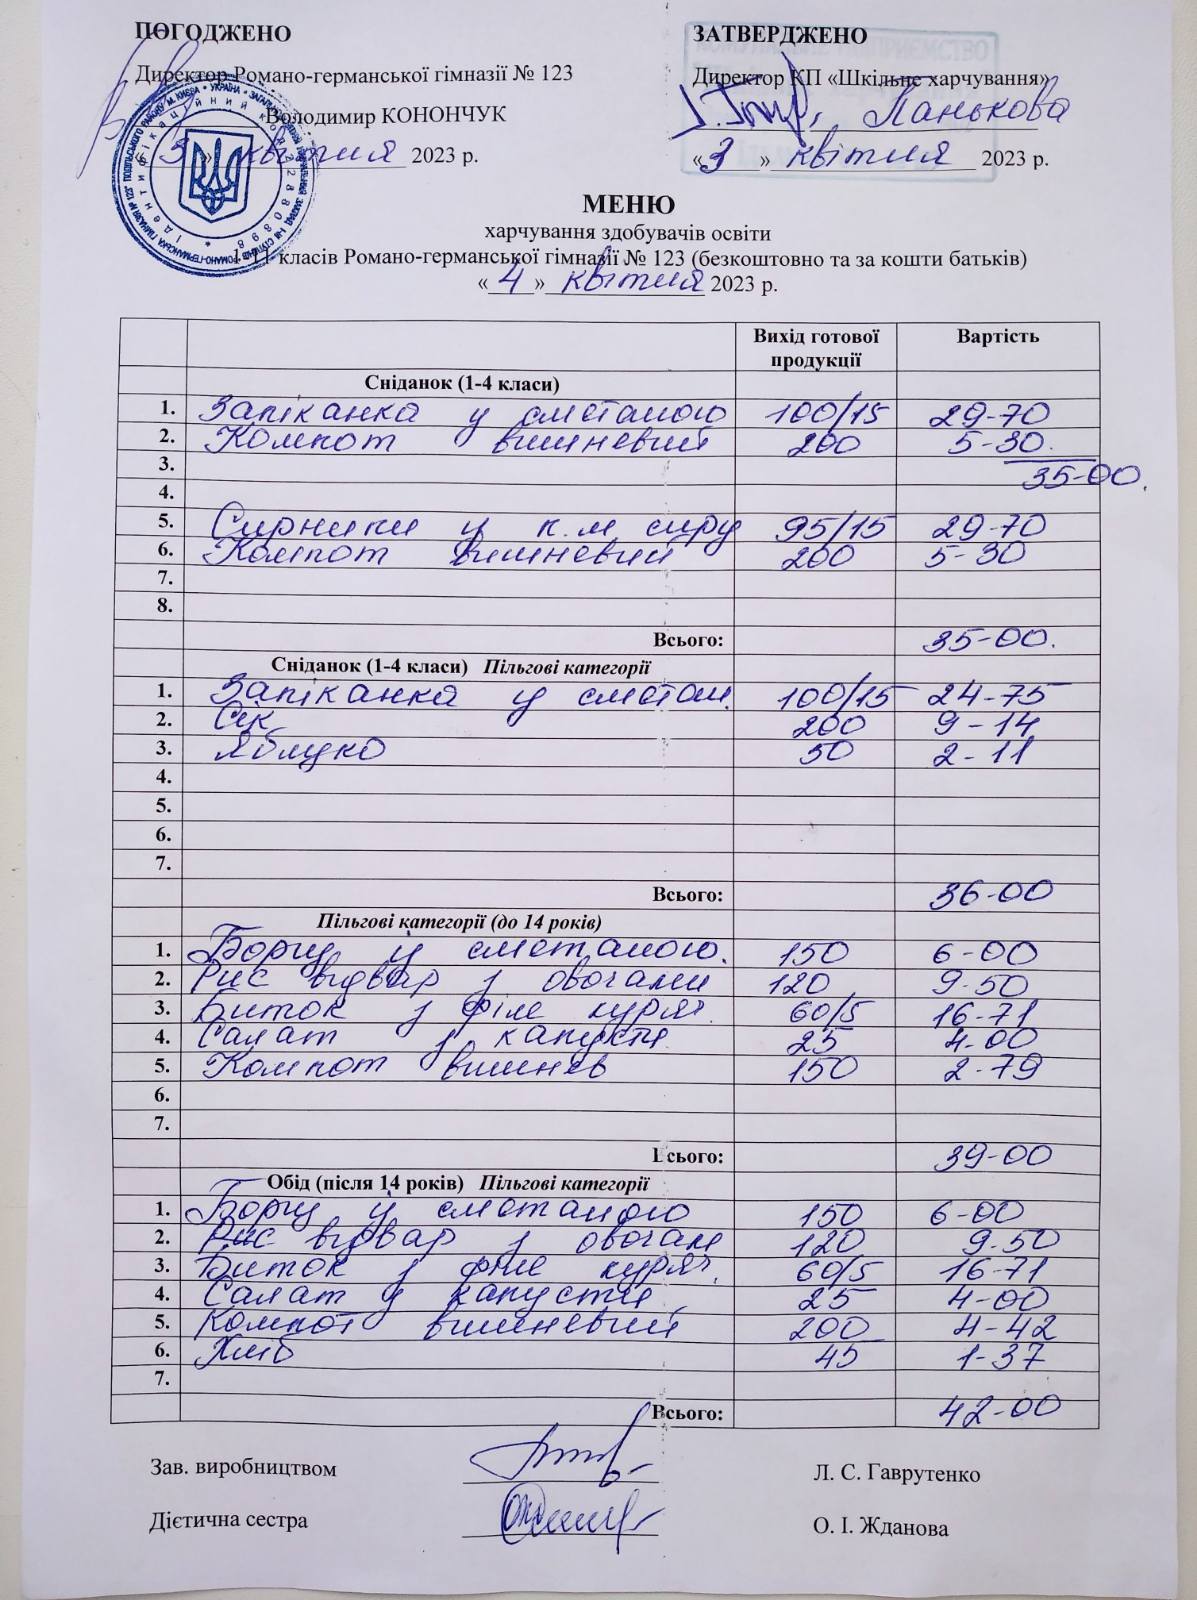 ПОГОДЖЕНО
Директор Романо-германської гімназії № 123
Володимир КОНОНЧУК
«3» квітня 2023 р.
ЗАТВЕРДЖЕНО
Директор КП «Шкільне харчування»
Панькова
«3» квітня 2023 р.
МЕНЮ
харчування здобувачів освіти
1-11 класів Романо-германської гімназії № 123 (безкоштовно та за кошти батьків)
«4» квітня 2023 р.
Вихід готової продукції Вартість
Сніданок (1-4 класи)
1. Запіканка у сметаною 100/15 29-70
2. Компот вишневий 200 5-30
3. 35-00.
4.
5. Сирники у к.м сиру 95/15 29-70
6. Компот вишневий 200 5-30
7.
8.
Всього: 35-00.
Сніданок (1-4 класи) Пільгові категорії
1. Запіканка у сметан. 100/15 24-75
2. Сік 200 9-14
3. Яблуко 50 2-11
4.
5.
6.
7.
Всього: 36-00
Пільгові категорії (до 14 років)
1. Борщ із сметаною. 150 6-00
2. Рис відвар з овочами 120 9-50
3. Биток з філе куряч. 60/5 16-71
4. Салат з капусти 25 4-00
5. Компот вишнев 150 2-79
6.
7.
Всього: 39-00
Обід (після 14 років) Пільгові категорії
1. Борщ із сметаною 150 6-00
2. Рис відвар з овочам 120 9-50
3. Биток з філе куряч. 60/5 16-71
4. Салат з капусти 25 4-00
5. Компот вишневий 200 4-42
6. Хліб 45 1-37
7.
Всього: 42-00
Зав. виробництвом Л. С. Гаврутенко
Дієтична сестра О. І. Жданова